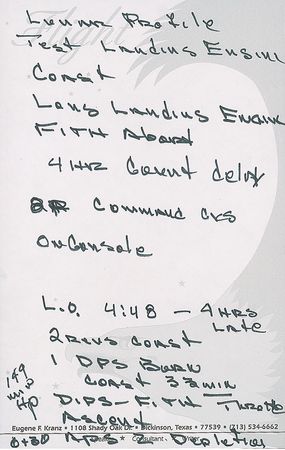 Flight
Lunar Profile
Test Landing Engine
Coast
Long Landing Engine
FITH Abort
4 HR Count delay
Command CKS
On Console
L.O. 4:48 - 4 HRS
Late
2 Revs Coast
1 DPS Burn
Coast 33 min
DIPS - FITH Throttle
Ascent
Eugene F. Kranz • 1108 Shady Oak Dr. • Dickinson, Texas • 77539 • (713) 534-6662
APS Depletion
Consultant